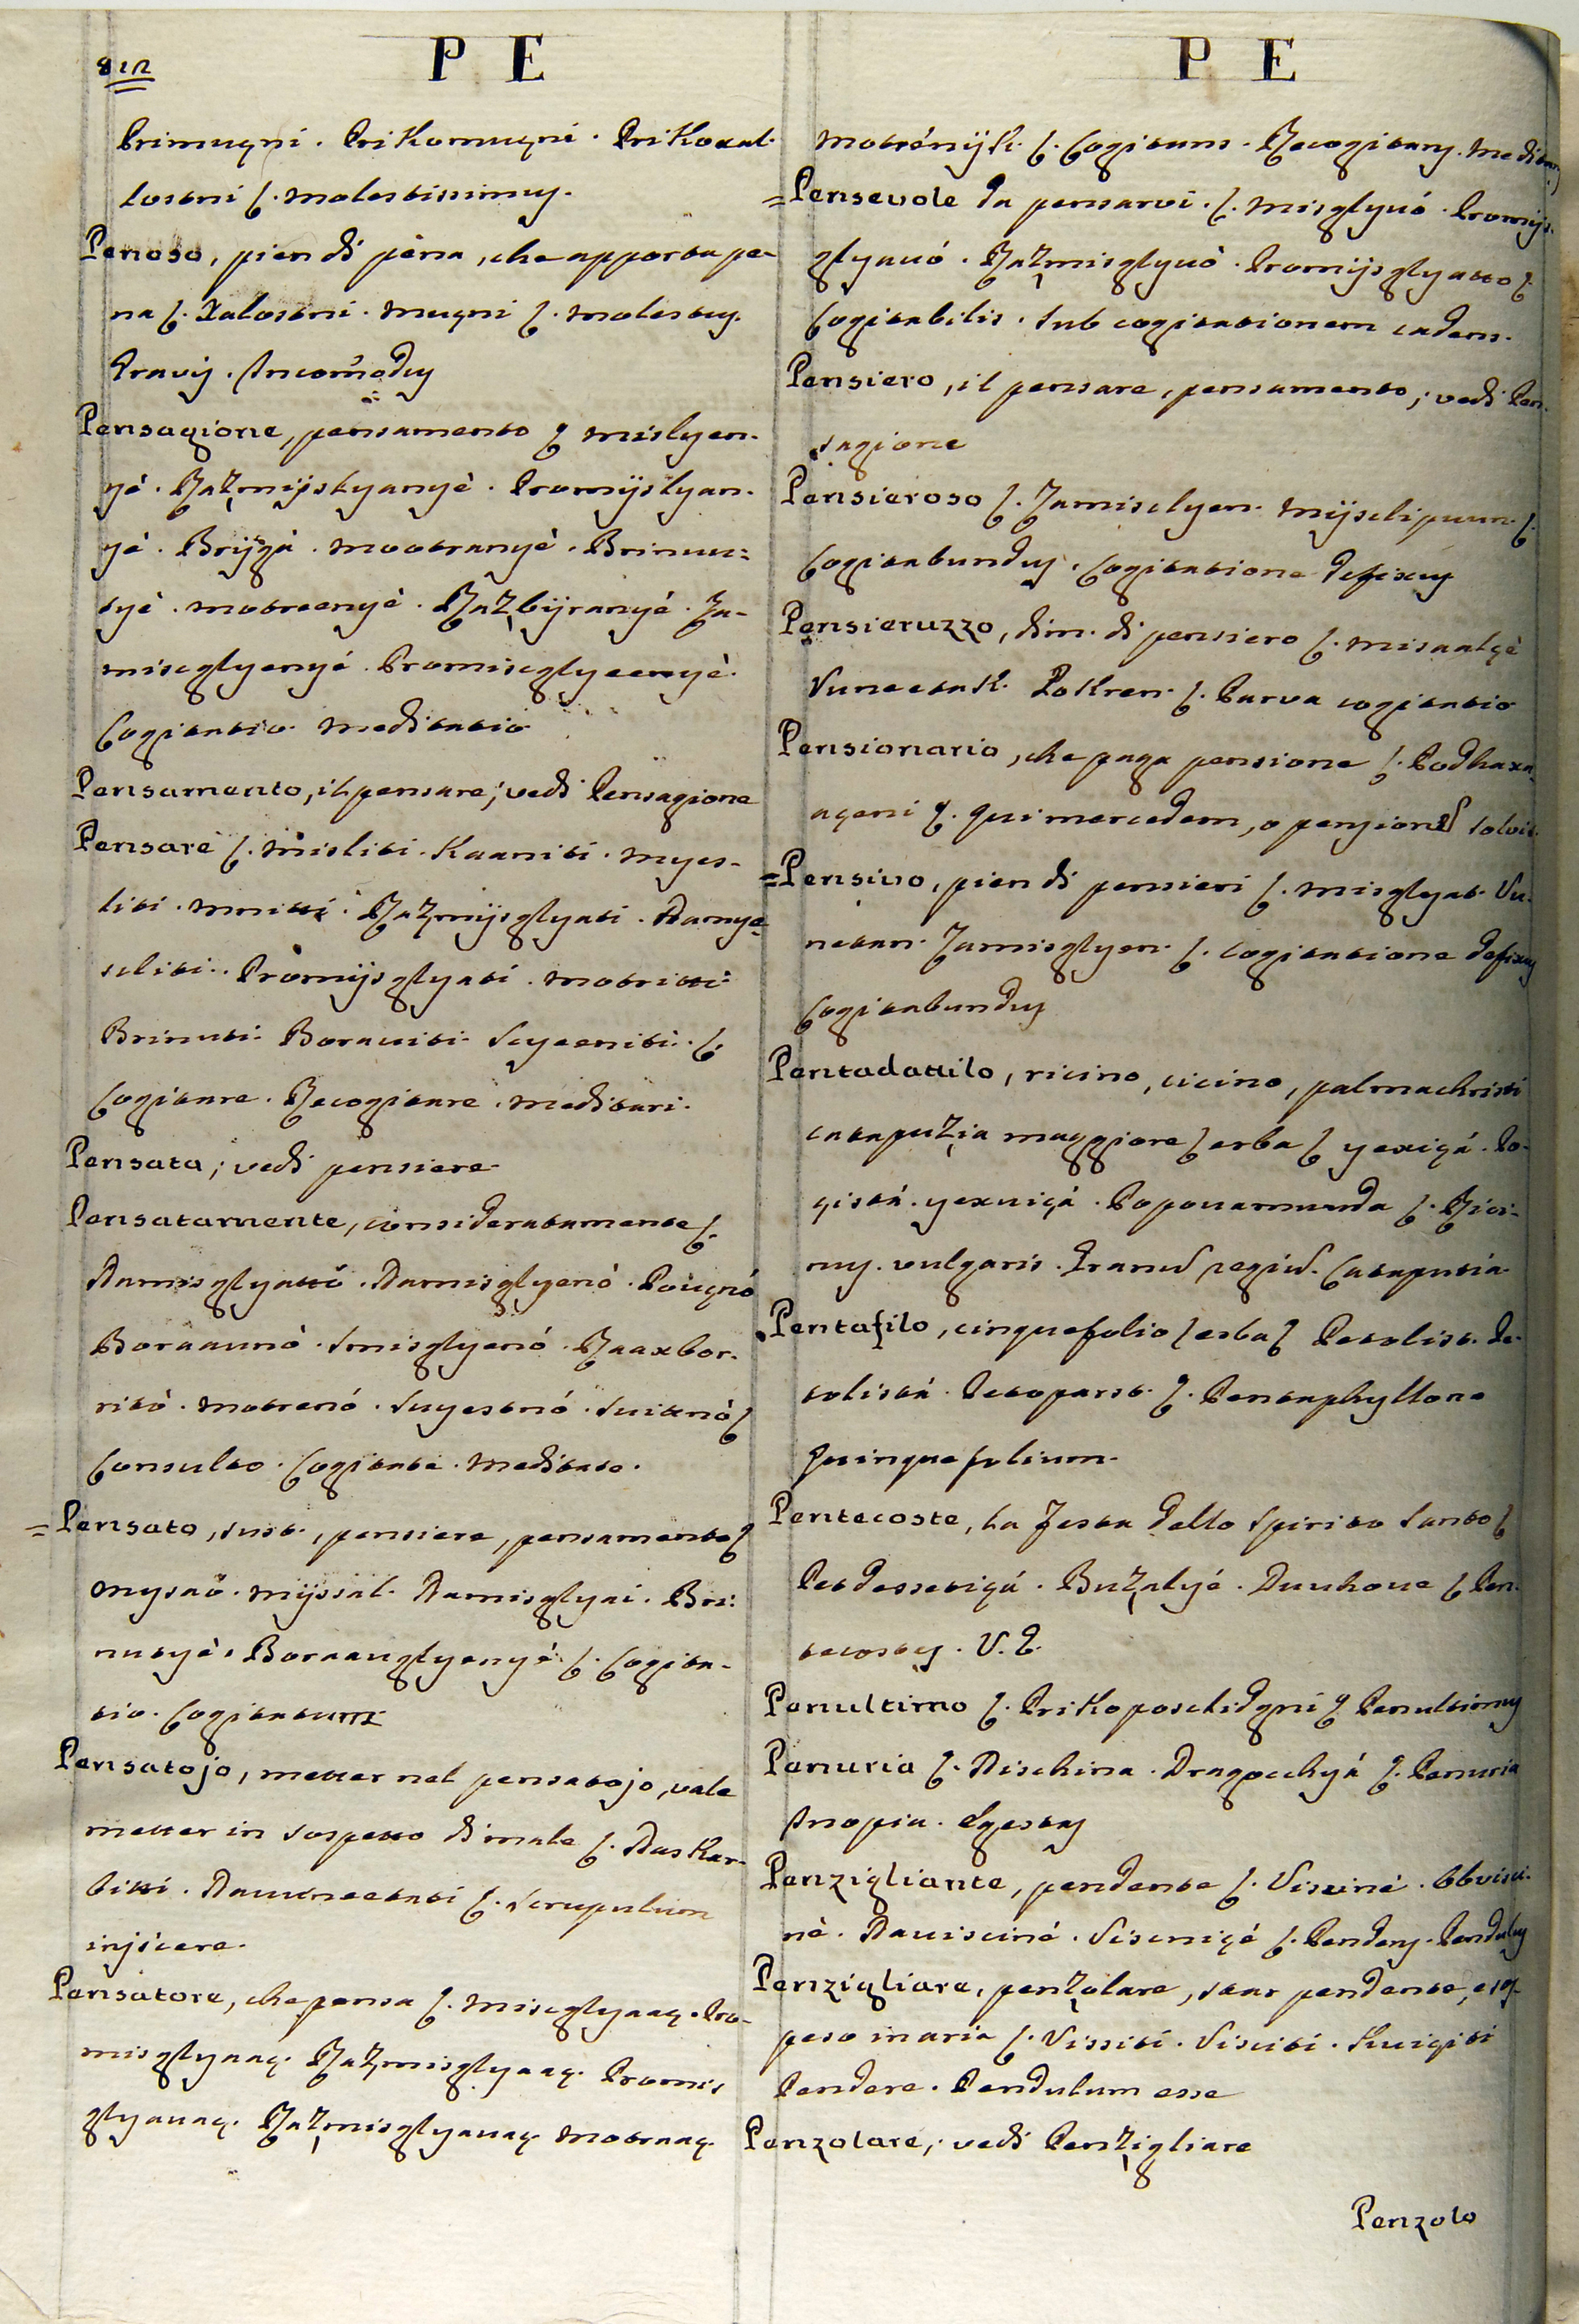 812
P E
Primuçni. Prikomuçni. Prikoxal-
lostni ſ. molestissimus.
Penoso, pien di pena, che apporta pe-
na ſ. Xalostni. muçni ſ. molestus.
Gravis. Incom̃odus
Pensagione, pensamento ſ mislyen-
yè. Raz̧mijslyanyè. Promijslyan-
yè. Brijgà. mootranyè. Brinuu=
tyè. motreenyè. Raz̧bijranyè. Za-
miscglyenyé. Promiscglyeenyè.
Cogitatio. meditatio
Pensamento, il pensare; vedi Pensagione
Pensare ſ. misliti. Kaaniti. myes-
liti. mnitti. Raz̧mijsglyati. Damye-
sliti. Promijsglyati. motritti
Brinuti. Borauiti. Scyeeniti. ſ.
Cogitare. Recogitare. meditari.
Pensata; vedi pensiere
Pensatamente, consideratamente ſ.
Damisglyattò. Damisglyenò. Poiiçnó
Boraaunò. Smisglyenó. Raaxbor-
ritò. motrenó. Suyestnó. Suitnò ſ
Consulto. Cogitate. Meditato.
= Pensato, sust., pensiere, pensamento ſ
mysaò. mijssal. Damisglyai. Bri:
nutyè. Boraauglyenyé. ſ. Cogita-
tio. Cogitatum
Pensatojo, metter nel pensatojo, vale
metter in sospetto di male ſ. Dasker-
bitti. Dauuneetati ſ. Scrupulum
injicere.
Pensatore, che pensa ſ. Miscglyaaç. Pro-
misglyaaç. Raz̧misglyaaç. Promis
glyauaç. Raz̧misglyauaç motraaç.
P E
motrénijk. ſ. Cogitans. Recogitans. Meditans
= Pensevole da pensarvi. ſ. misglyuó. Promijs-
glyauó. Raz̧misglyuò. Promijsglyatto ſ.
Cogitabilis. Sub cogitationem cadens.
Pensiero, il pensare, pensamento; vedi Pen-
sagione
Pensieroso ſ. Zamisclyen. Mijsclipuun ſ.
Cogitabundus. Cogitatione defixus
Pensieruzzo, dim. di pensiero ſ. misaalçè
Vuneetak. Pokren. ſ. Parva cogitatio
Pensionario, che paga pensione ſ. Podhaxa-
açeni ſ. qui mercedem, o pensionem solvit
= Pensivo, pien di pensieri ſ. misglyat. Vu-
netan. Zamisglyen. ſ. cogitatione defixus
Cogitabundus
Pentadattilo, ricino, cicino, palmachristi
cataputz̧ia maggiore ſ erba ſ yexiçá. Po-
çistá. yexuiçá. Popouamuuda ſ. Rici-
nus. vulgaris. Granum regium. Cataputia
Pentafilo, cinquefolio ſ erba ſ Petolist. Pe-
tolistá. Petoparst. ſ. Pentaphyllone
Quinquefolium.
Pentecoste, la Festa dello Spirito Santo ſ
Petdessetiçá. Buz̧alyé. Duuhoue ſ Pen-
tecostes. V. G.
Penultimo ſ. Prikoposclidgni ſ Penultimus
Penuria ſ. Dischina. Dragocchyá ſ. Penuria
Inopia. Egestas
Penzigliante, pendente ſ. Viscinè. Obvisci-
nè. Dauisciné. Viscniçé ſ. Pendens. Pendulus
Penzigliare, penz̧olare, star pendente, e sos-
peso in aria ſ. Vissiti. Visciti. Kuiçiti
Pendere. Pendulum esse
Penzolare; vedi Penz̧igliare
Penzolo